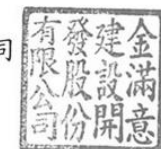 司
金滿意
建設開
發股份
有限公司